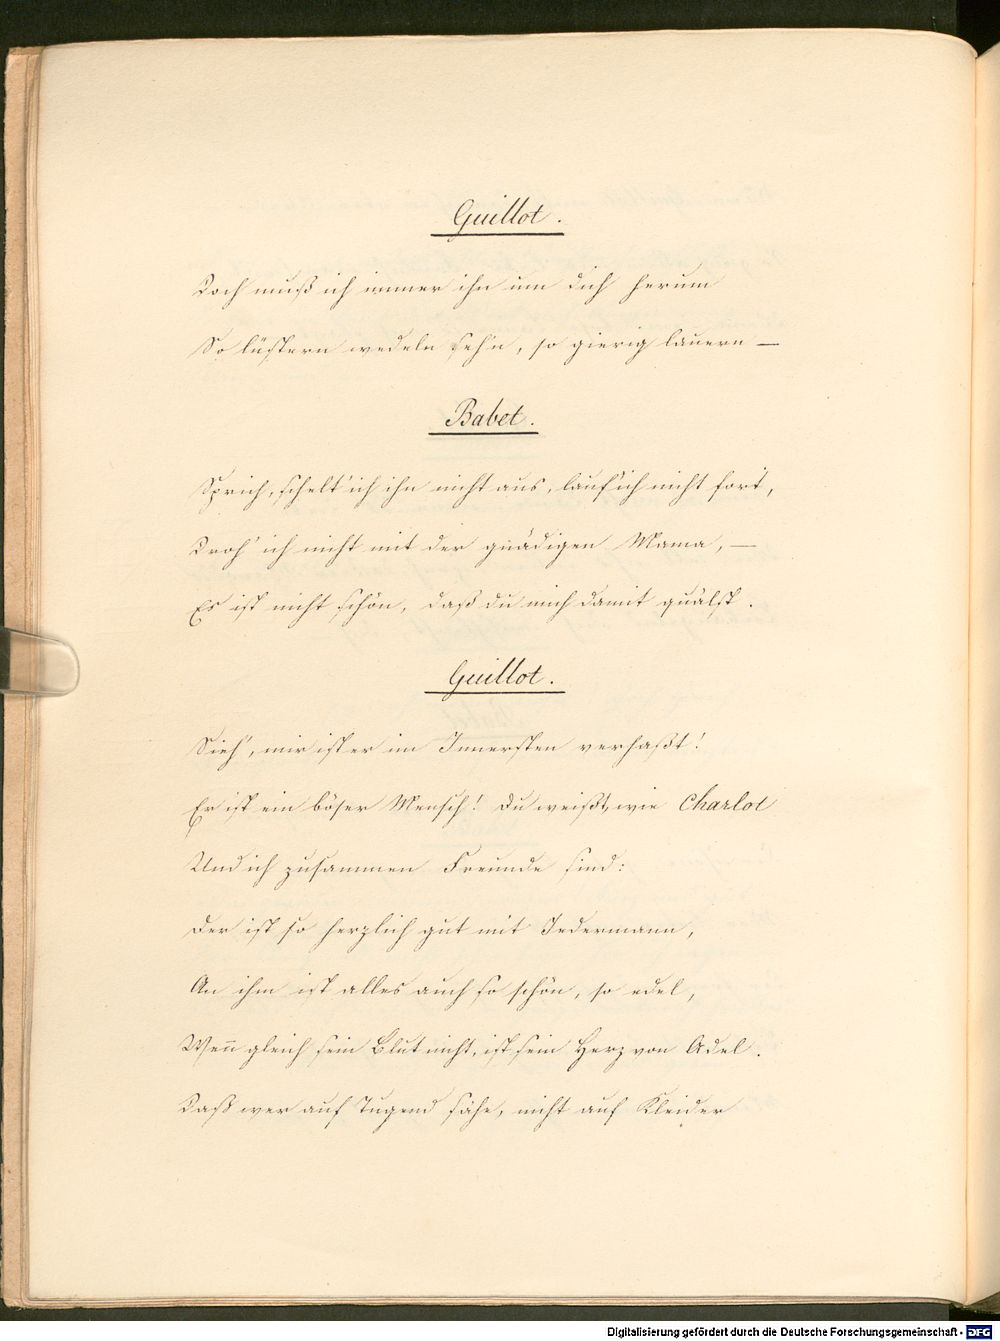 Guillot.
Doch muß ich immer ihn um dich herum
So lüstern wedeln sehn, so gierig lauern —
Babet.
Sprich, schelt' ich ihn nicht aus, lauf' ich nicht fort,
Droh' ich nicht mit der gnädigen Mama, —
Es ist nicht schön, daß du mich damit quälst.
Guillot.
Sieh', mir ist er im Innersten verhaßt!
Er ist ein böser Mensch! Du weißt, wie Charlot
Und ich zusammen Freunde sind:
Der ist so herzlich gut mit Jedermann,
An ihm ist alles auch so schön, so edel,
Wenn̄ gleich sein Blut nicht, ist sein Herz von Adel.
Daß wer auf Tugend sähe, nicht auf Kleider
Digitalisierung gefördert durch die Deutsche Forschungsgemeinschaft - DFG